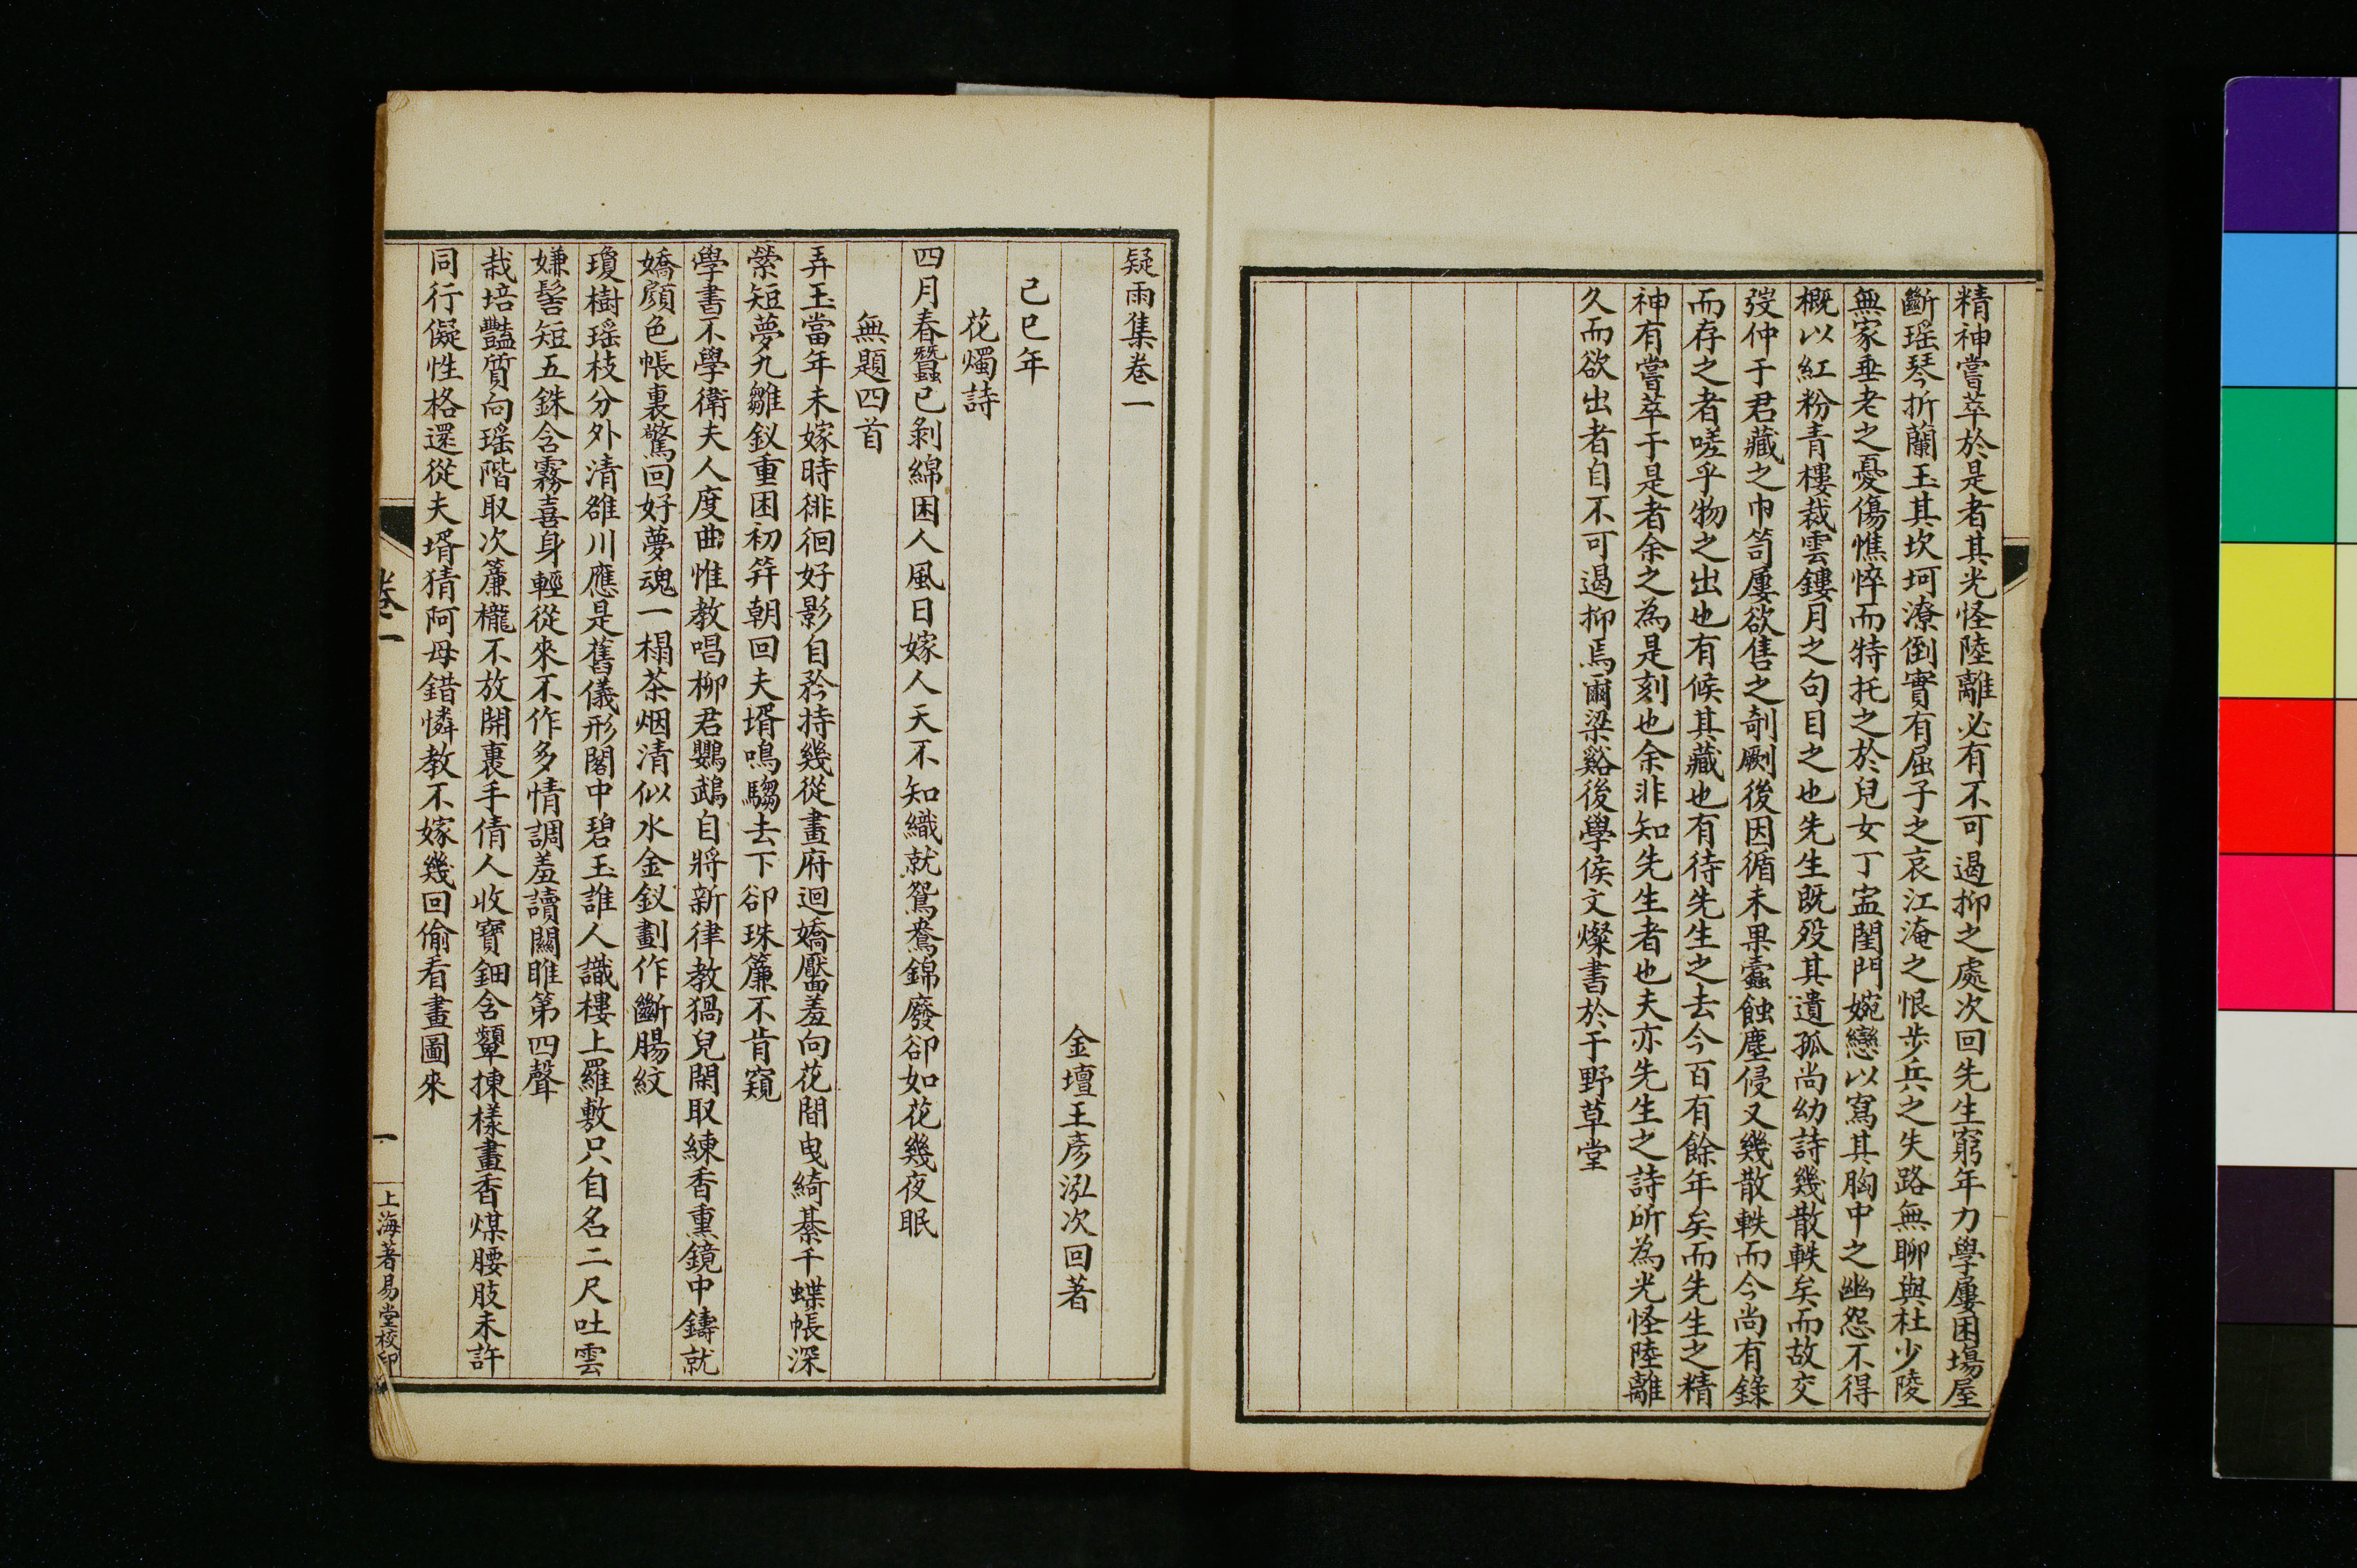 精神嘗萃於是者其光怪陸離必有不可遏抑之處次回先生窮年力學屢困塲屋
斷瑶琴折蘭玉其坎坷潦倒實有屈子之哀江淹之恨步兵之失路無聊與杜少陵
無家垂老之憂傷憔悴而特托之於兒女丁寍閨門婉戀以寫其胸中之幽怨不得
概以紅粉青樓裁雲鏤月之句目之也先生既歿其遺孤尚幼詩幾散軼矣而故交
弢仲于君藏之巾笥屢欲售之剞劂後因循未果蠹蝕塵侵又幾散軼而今尚有錄
而存之者嗟乎物之出也有候其藏也有待先生之去今百有餘年矣而先生之精
神有嘗萃于是者余之為是刻也余非知先生者也夫亦先生之詩所為光怪陸離
久而欲出者自不可遏抑焉爾梁谿後學侯文燦書於干野草堂
疑雨集卷一
金壇王彥泓次回著
己巳年
花燭詩
四月春蠶已剝綿困人風日嫁人天不知織就鴛鴦錦廢卻如花幾夜眠
無題四首
弄玉當年未嫁時徘徊好影自矜持幾從畫府迴嬌靨羞向花間曳綺綦千蝶帳深
縈短夢九雛釵重困初笄朝回夫壻鳴騶去下卻珠簾不肯窺
學書不學衛夫人度曲惟教唱柳君鸚鵡自將新律教猧兒閑取練香熏鏡中鑄就
嬌顏色帳裏驚回好夢魂一榻茶烟清似水金釵劃作斷腸紋
瓊樹瑶枝分外清雒川應是舊儀形閣中碧玉誰人識樓上羅敷只自名二尺吐雲
嫌髻短五銖含霧喜身輕從來不作多情調羞讀關雎第四聲
栽培豔質向瑶階取次簾櫳不放開裹手倩人收寶鈿含顰揀樣畫香煤腰肢未許
同行儗性格還從夫壻猜阿母錯憐教不嫁幾回偷看畫圖來
卷一
一
上海著易堂校印